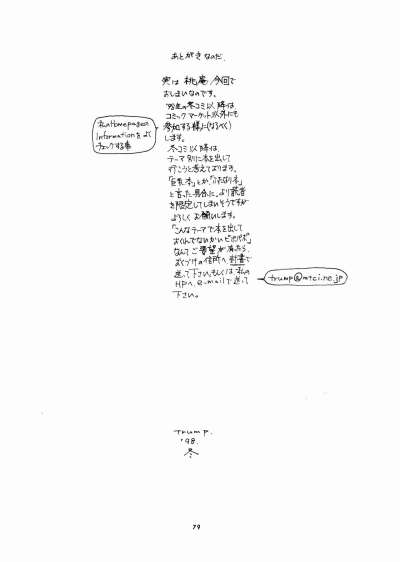 あとがきなのだ.
実は 桃庵/今回で
おしまいなのです。
冬コミ以降は
コミックマーケット以外にも
参加する様に(なるべく)
します。
私のHomepageの
Informationをよく
チェックする事
冬コミ以降は、
テーマ別に本を出して
行こうと考えております。
と言った場合に、より読者
を限定してしまいそうですが
よろしくお願いします。
「こんなテーマで本を出して
なんてご要望が有ったら、
おくづけの住所へ 封書で
送って下さい。もしくは 私の
HPへ、e-mailで送って
下さい。
trump@mtci.ne.jp
Trump.
'98.
冬
79